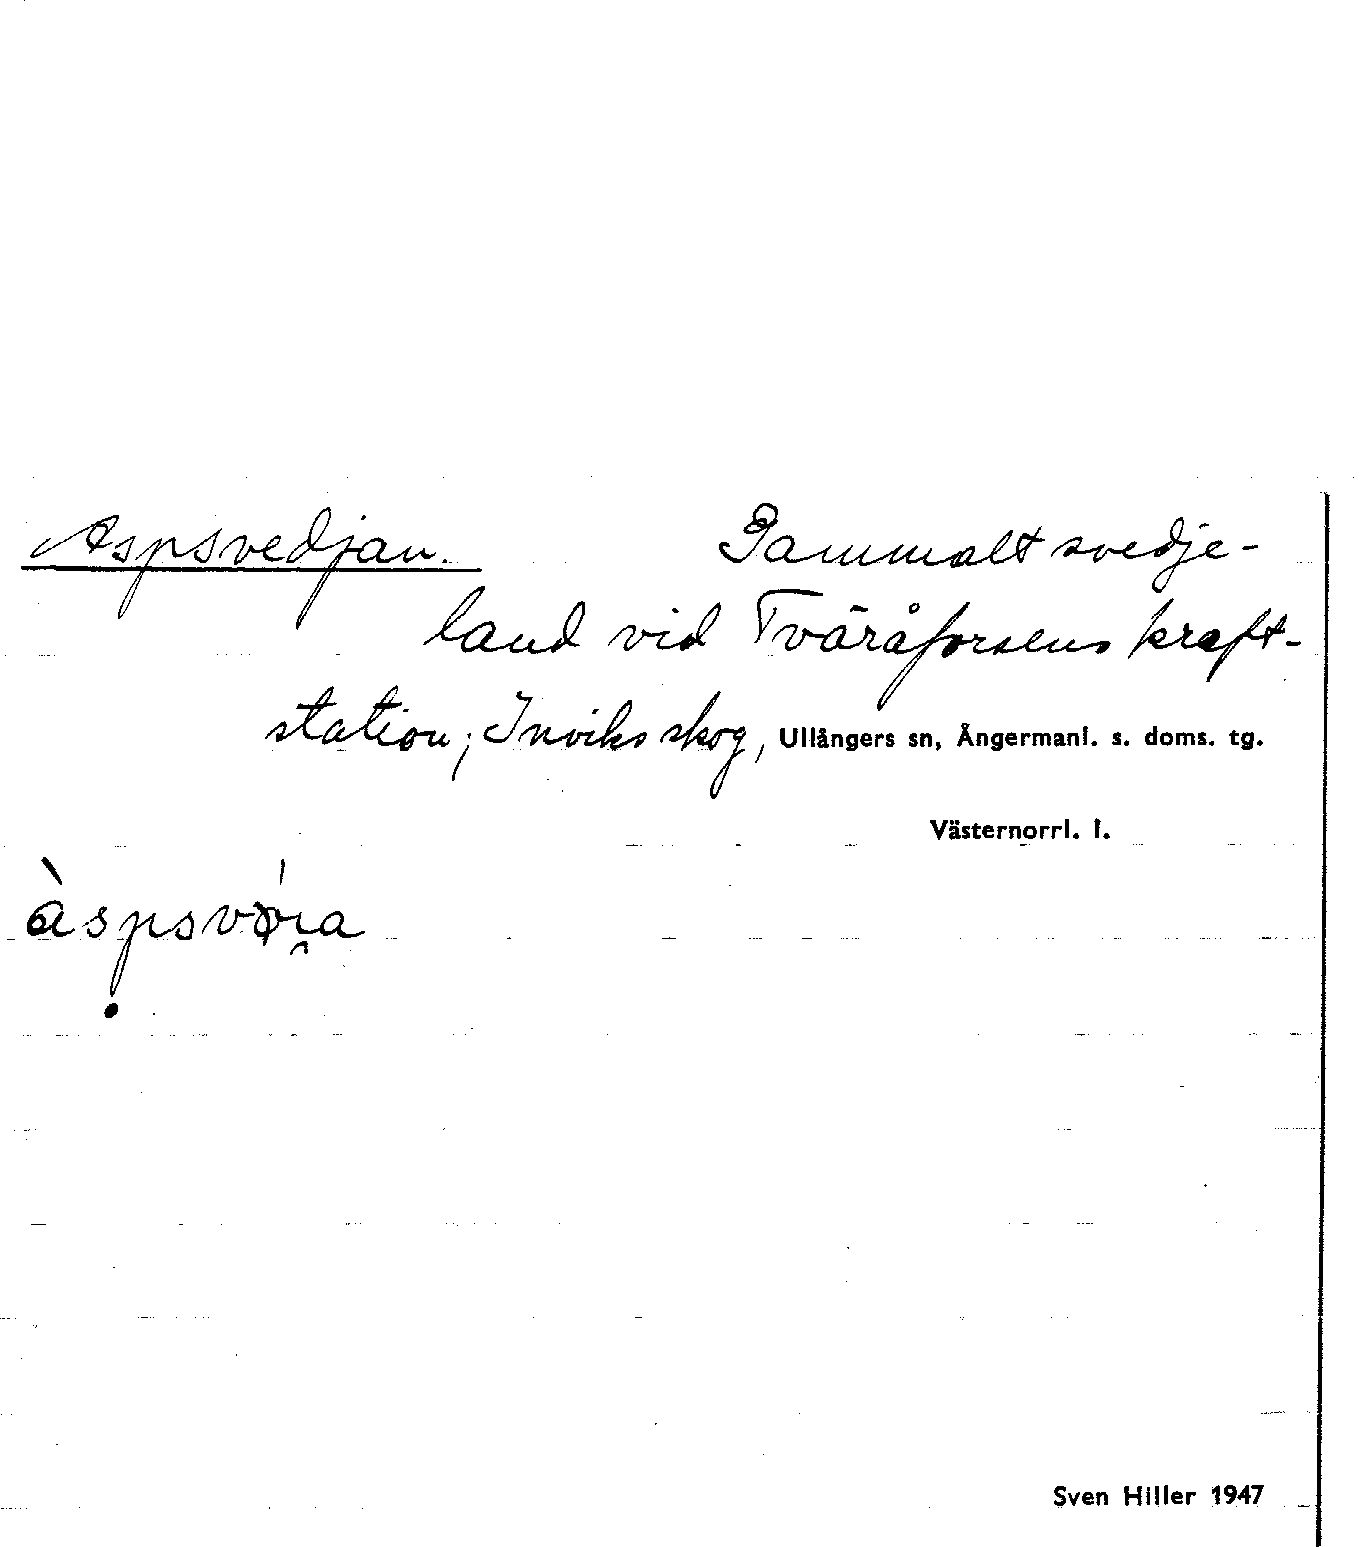 Aspsvedjan. Gammalt svedje-
land vid Tväråforsens kraft-
station; Inviks skog, Ullångers sn, Ångermanl. s. doms. tg.
Västernorrl. l.
Sven Hiller 1947